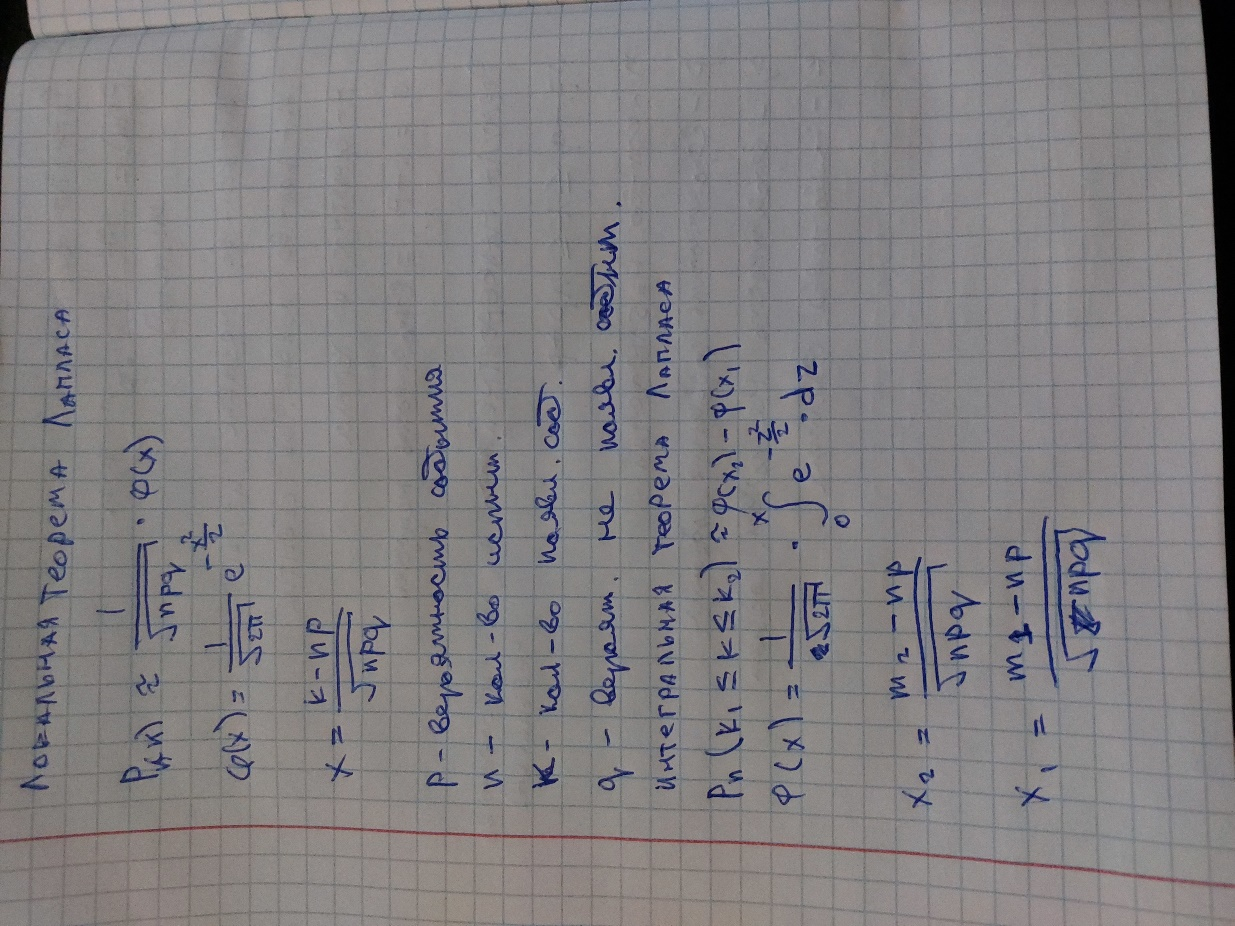 Локальная теорема Лапласа
Pn(k) ≈ 1/√npq · φ(x)
φ(x) = 1/√2π e^(-x²/2)
x = (k-np)/√npq
P - вероятность события
n - кол-во испыт.
k - кол-во появл. соб.
q - вероят. не появл. событ.
Интегральная теорема Лапласа
Pn(k₁ ≤ k ≤ k₂) ≈ Ф(x₂) - Ф(x₁)
Ф(x) = 1/√2π · ∫₀ˣ e^(-z²/2) · dz
x₂ = (m₂ - np)/√npq
x₁ = (m₁ - np)/√npq